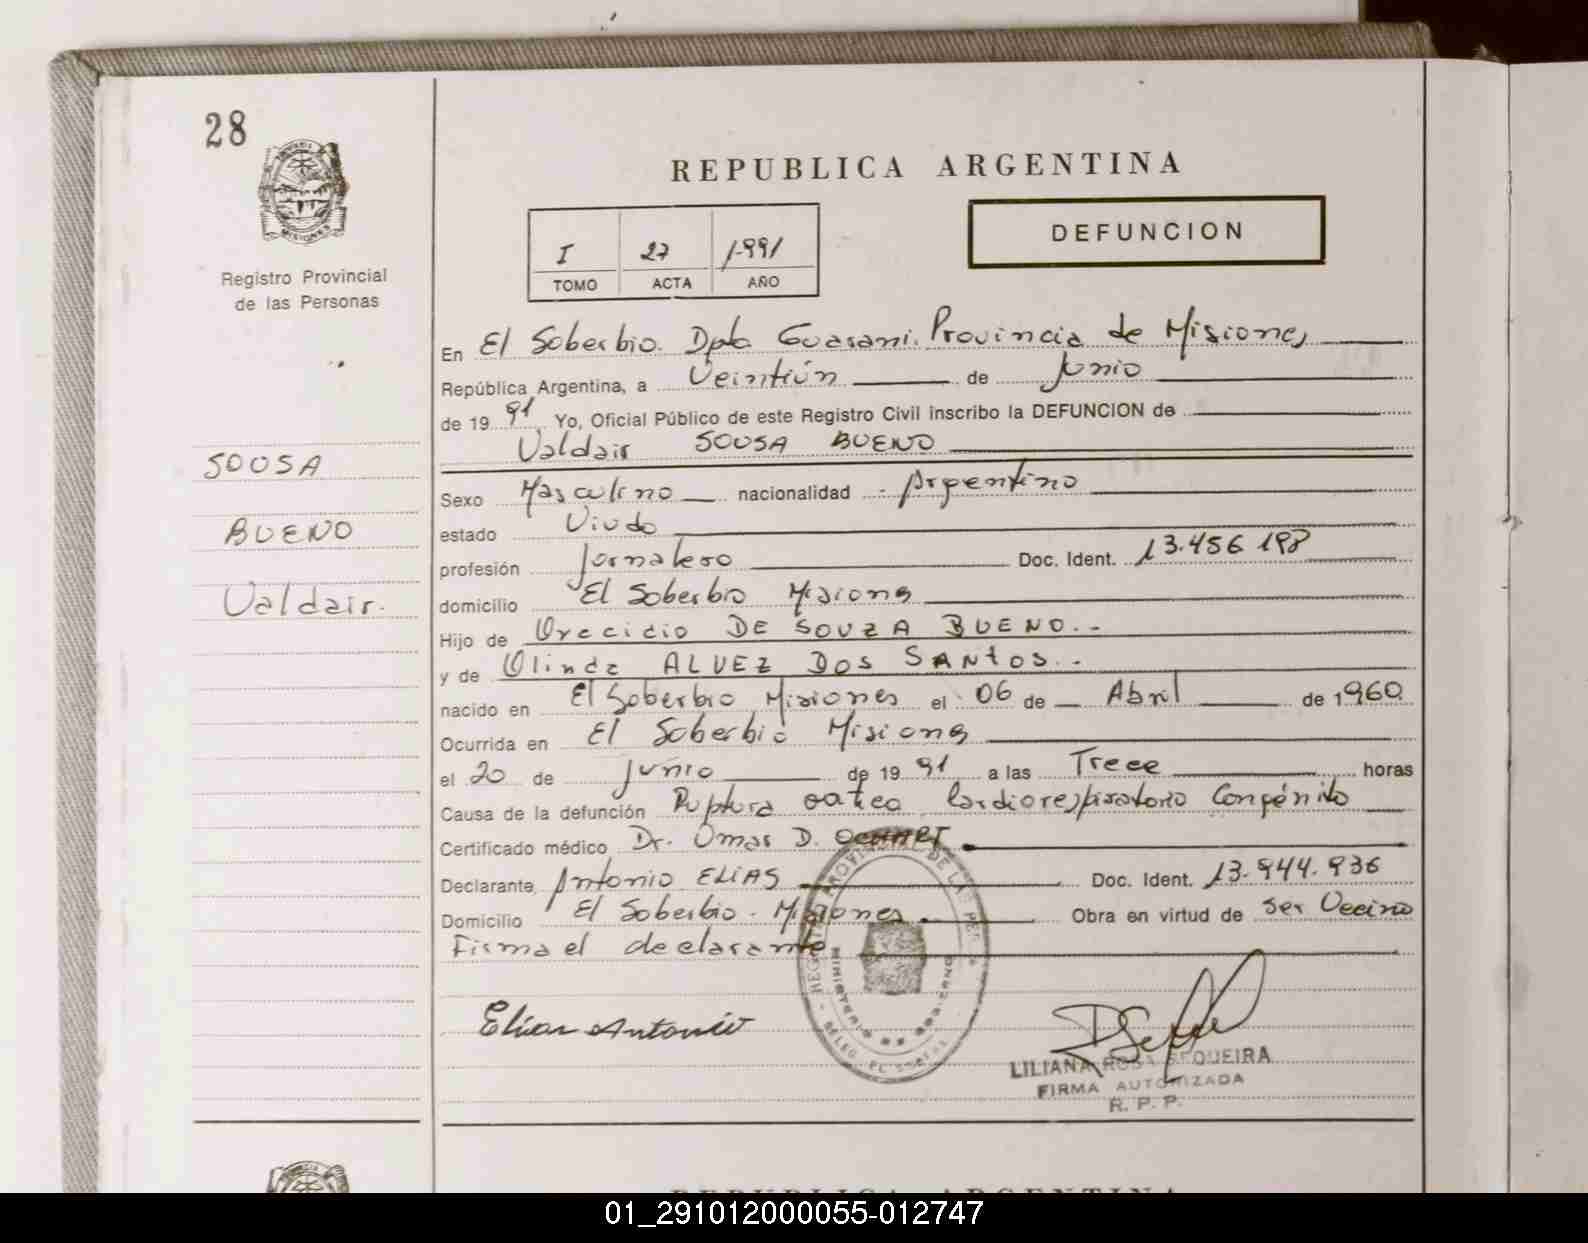 28
REPUBLICA ARGENTINA
MISIONES
Registro Provincial
de las Personas
I 27 1991
TOMO ACTA AÑO
DEFUNCION
En El Soberbio. Dpto Guarani. Provincia de Misiones
República Argentina, a Veintiún de Junio
de 19 91 Yo, Oficial Público de este Registro Civil inscribo la DEFUNCION de
Valdair SOUSA BUENO
SOUSA
BUENO
Valdair.
Sexo Masculino nacionalidad Argentino
estado Viudo
profesión Jornalero Doc. Ident. 13.456 198
domicilio El Soberbio Misiones
Hijo de Orecidio DE SOUZA BUENO.-
y de Olinda ALVEZ DOS SANtOS.-
nacido en El Soberbio Misiones el 06 de Abril de 1960
Ocurrida en El Soberbio Misiones
el 20 de Junio de 19 91 a las Trece horas
Causa de la defunción Ruptura Cardiorespiratorio Congénito
Certificado médico Dr. Omar D.
Declarante Antonio ELIAS Doc. Ident. 13.944.936
Domicilio El Soberbio - Misiones Obra en virtud de Ser Vecino
Firma el declarante
Elias Antonio
LILIANA ROSA SEQUEIRA
FIRMA AUTORIZADA
R. P. P.
REPUBLICA ARGENTINA
01_291012000055-012747